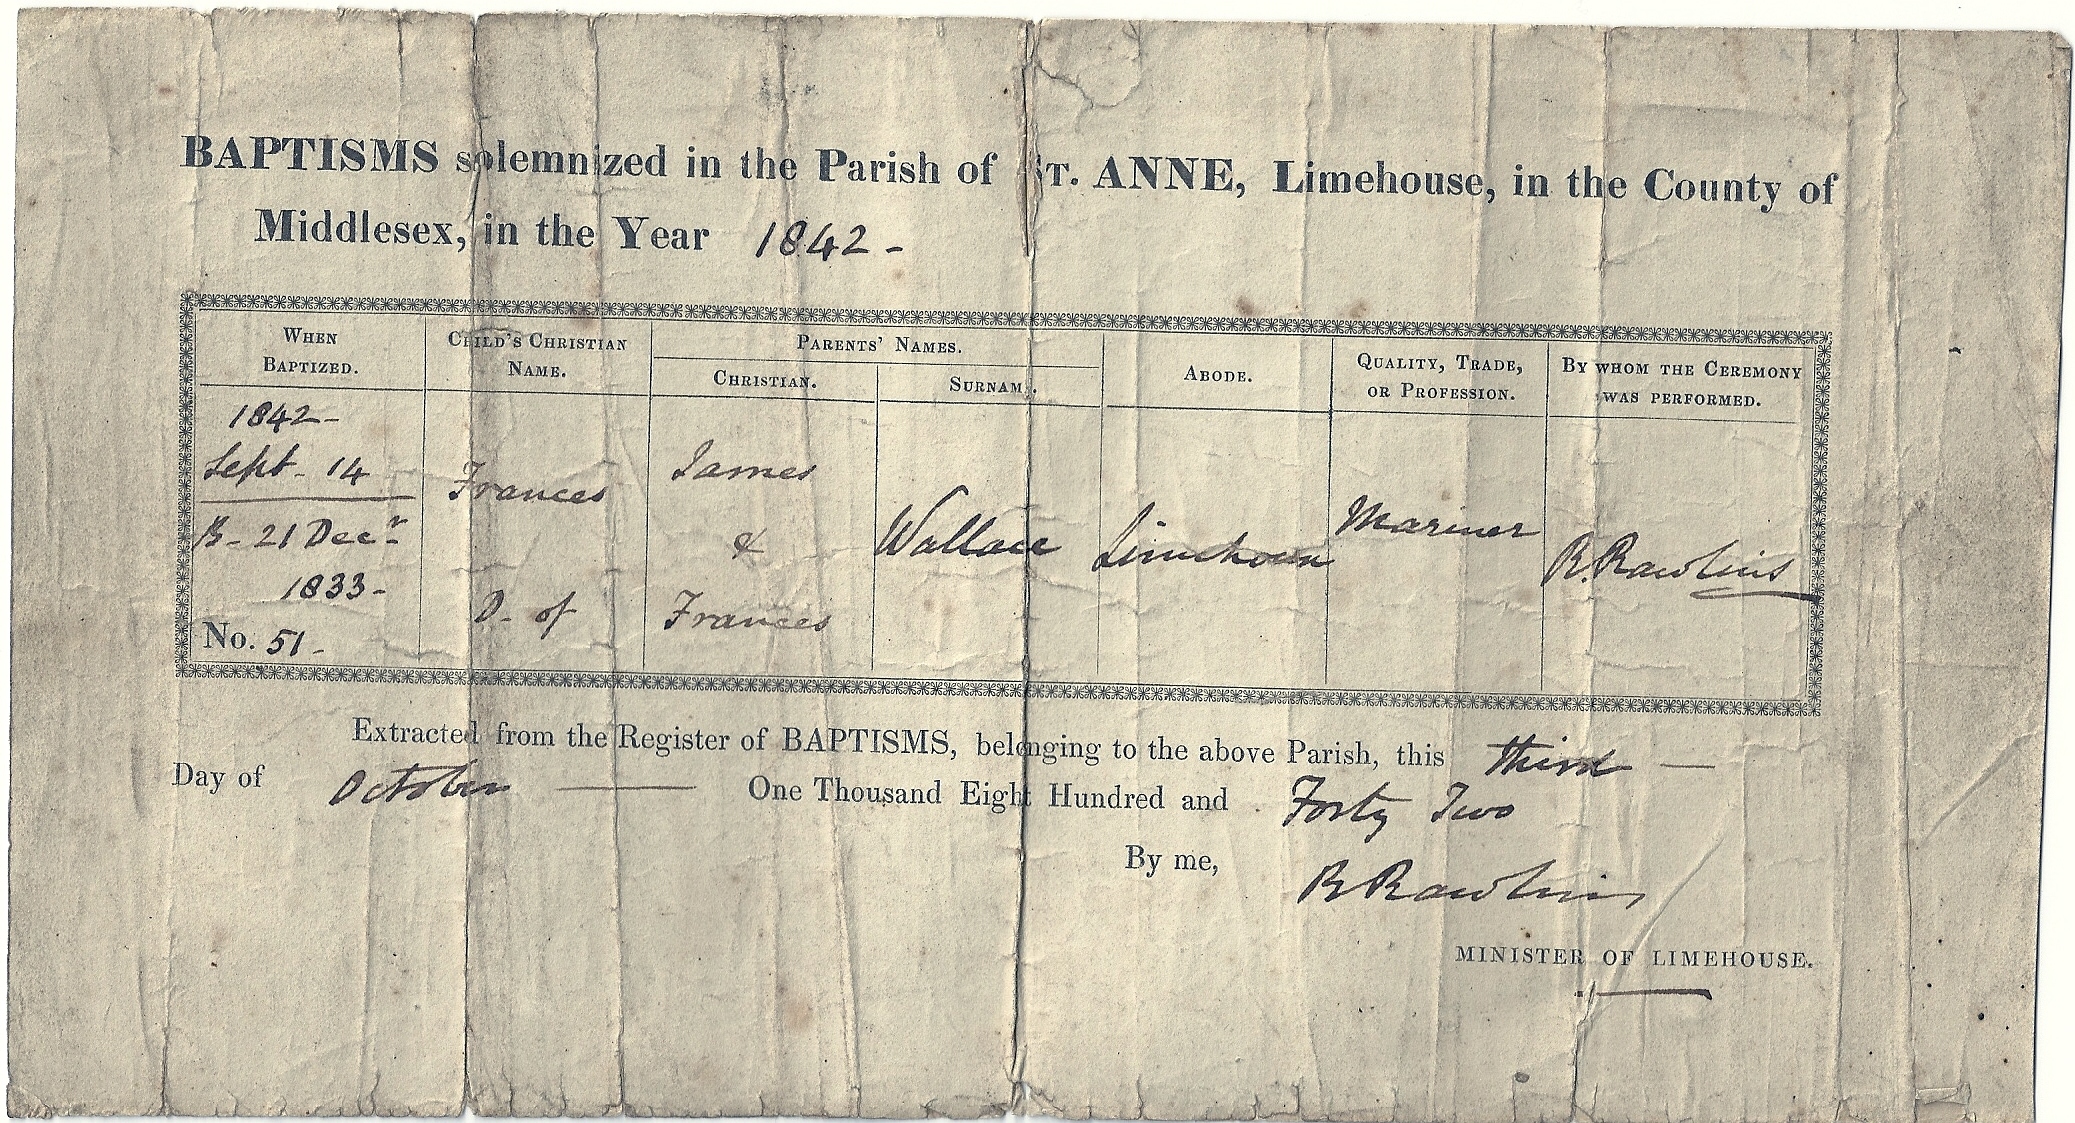 BAPTISMS solemnized in the Parish of ST. ANNE, Limehouse, in the County of
Middlesex, in the Year 1842 -
WHEN BAPTIZED.
CHILD'S CHRISTIAN NAME.
PARENTS' NAMES.
CHRISTIAN.
SURNAME.
ABODE.
QUALITY, TRADE, OR PROFESSION.
BY WHOM THE CEREMONY WAS PERFORMED.
1842 -
Sept - 14
B - 21 Decr -
1833 -
No. 51 -
Frances
D - of
James
&
Frances
Wallace
Limehouse
Mariner
R. Rawlins
Extracted from the Register of BAPTISMS, belonging to the above Parish, this third —
Day of October — One Thousand Eight Hundred and Forty Two
By me,
R Rawlins
MINISTER OF LIMEHOUSE.